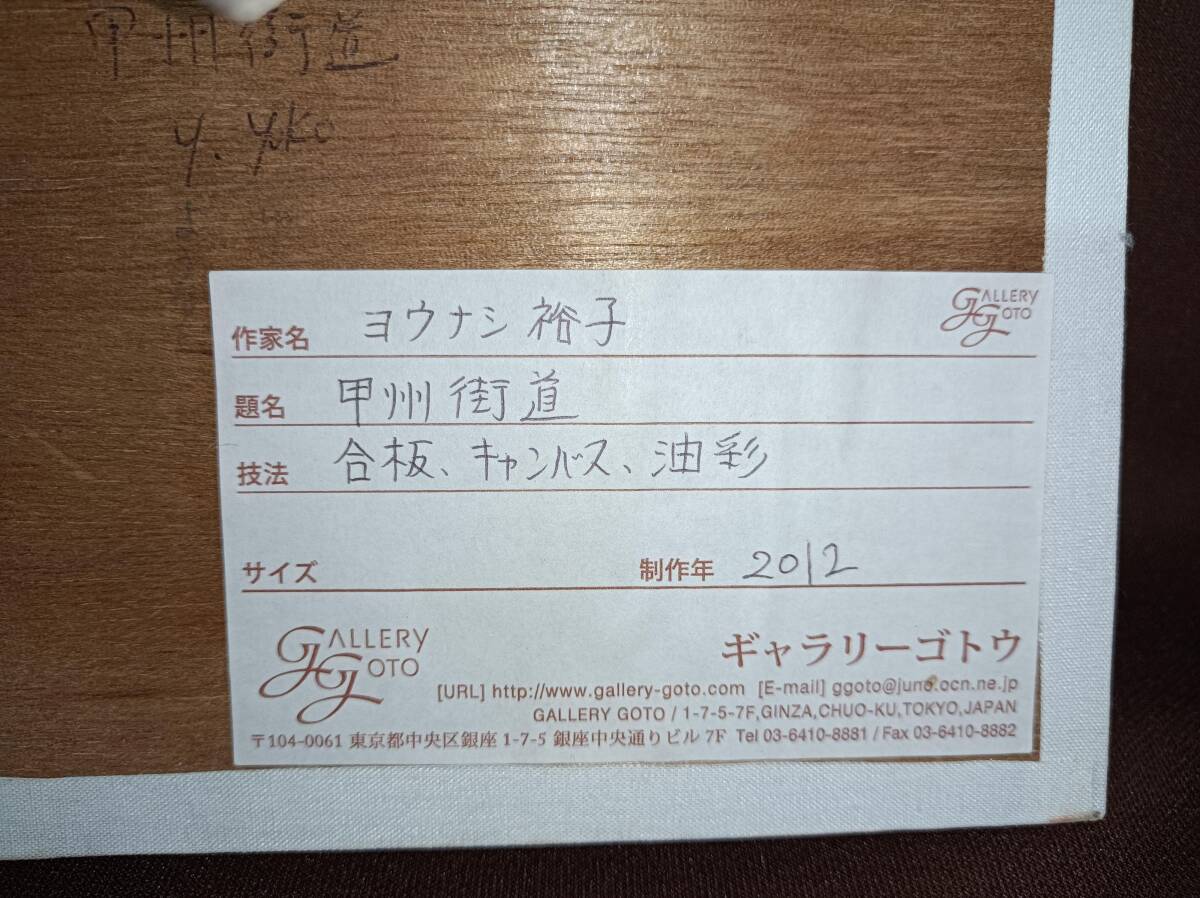 甲州街道
Y. Yuko
作家名 ヨウナシ 裕子
GALLERY GOTO
題名 甲州街道
技法 合板、キャンバス、油彩
サイズ 制作年 2012
GALLERY GOTO
ギャラリーゴトウ
[URL] http://www.gallery-goto.com [E-mail] ggoto@juno.ocn.ne.jp
GALLERY GOTO / 1-7-5-7F,GINZA,CHUO-KU,TOKYO,JAPAN
〒104-0061 東京都中央区銀座 1-7-5 銀座中央通りビル 7F Tel 03-6410-8881 / Fax 03-6410-8882